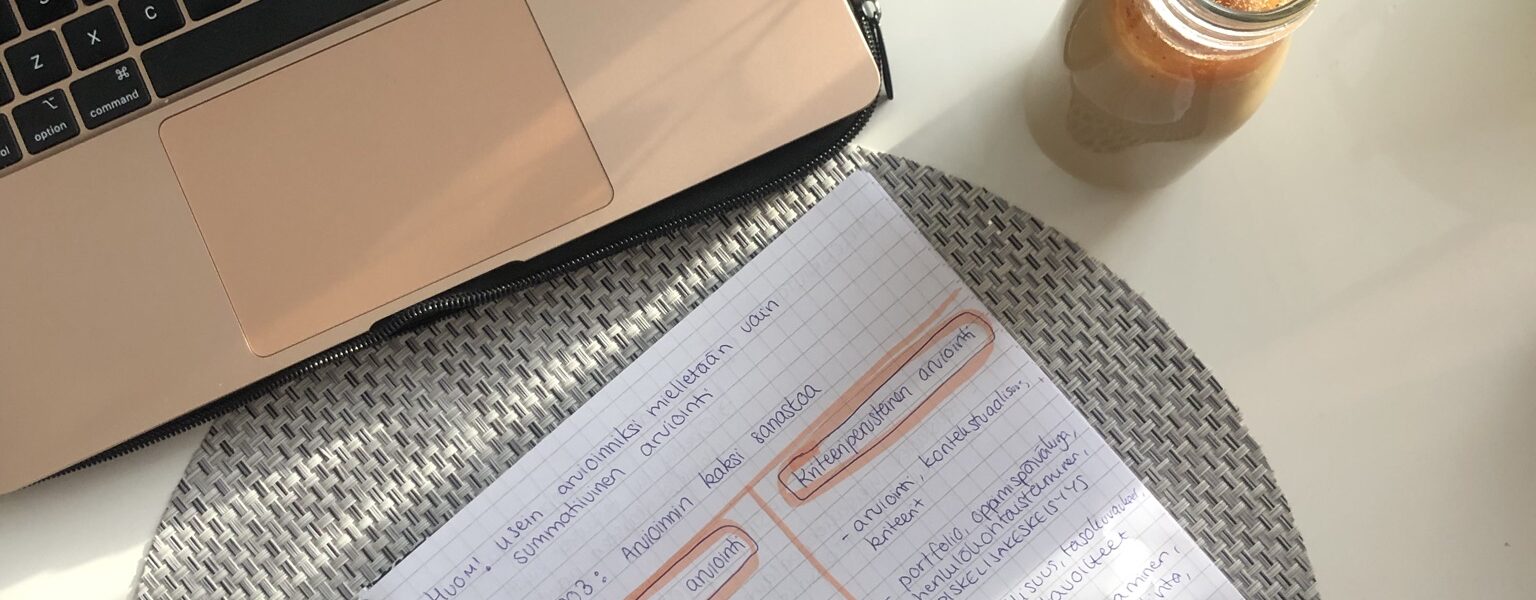 Z X C
option command
Huom! usein arvioinniksi mielletään vain
summatiivinen arviointi
003: Arvioinnin kaksi sanastaa
arviointi
Kriteeriperusteinen arviointi
- arviointi, kontekstuaalisuus, +
kriteerit
portfolio, oppimispäiväkirja,
henkilökohtaistaminen,
OPISKELIJAKESKEISYYS